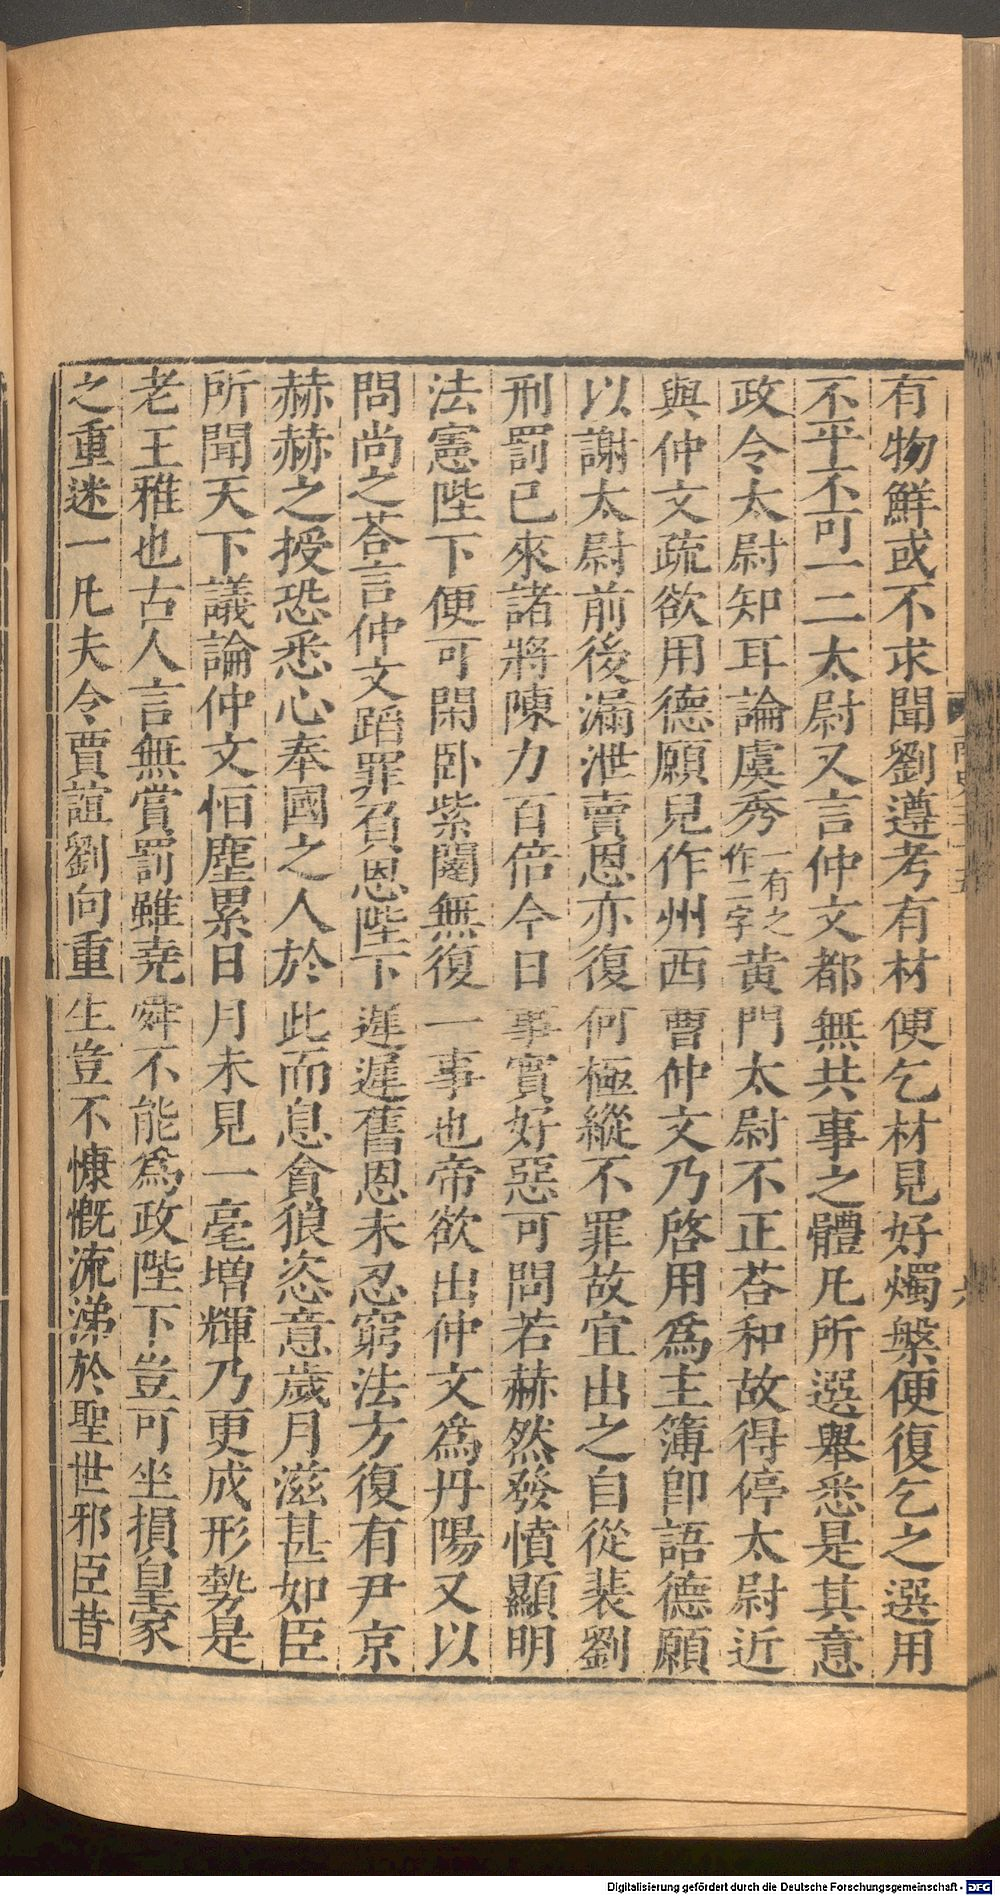 有物鮮或不求聞劉遵考有材便乞材見好燭槃便復乞之選用
不平不可一二太尉又言仲文都無共事之體凡所選舉悉是其意
政令太尉知耳論虞秀一有之作二字黄門太尉不正荅和故得停太尉近
與仲文疏欲用德願兒作州西曹仲文乃啓用爲主簿即語德願
以謝太尉前後漏泄賣恩亦復何極縱不罪故宜出之自從裴劉
刑罰已來諸將陳力百倍今日事實好惡可問若赫然發憤顯明
法憲陛下便可閑卧紫闥無復一事也帝欲出仲文爲丹陽又以
問尚之荅言仲文蹈罪負恩陛下遲遲舊恩未忍窮法方復有尹京
赫赫之授恐悉心奉國之人於此而息貪狼恣意歲月滋甚如臣
所聞天下議論仲文恒塵累日月未見一毫增輝乃更成形勢是
老王雅也古人言無賞罰雖堯舜不能爲政陛下豈可坐損皇家
之重迷一凡夫令賈誼劉向重生豈不慷慨流涕於聖世邪臣昔
Digitalisierung gefördert durch die Deutsche Forschungsgemeinschaft - DFG